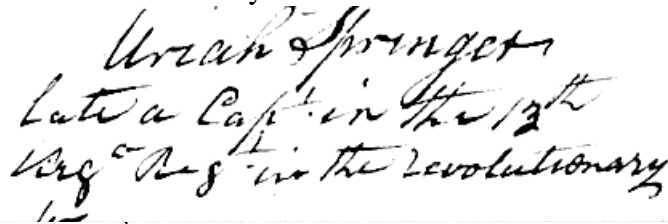 Uriah Springer
late a Capt in the 13th
Virga Regt in the revolutionary